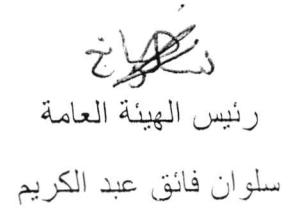 رئيس الهيئة العامة
سلوان فائق عبد الكريم